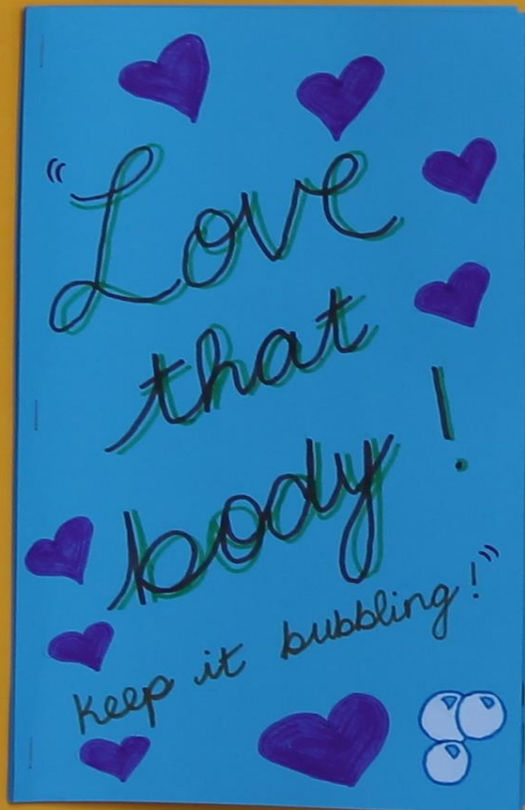 "Love
that
body!
keep it bubbling!"